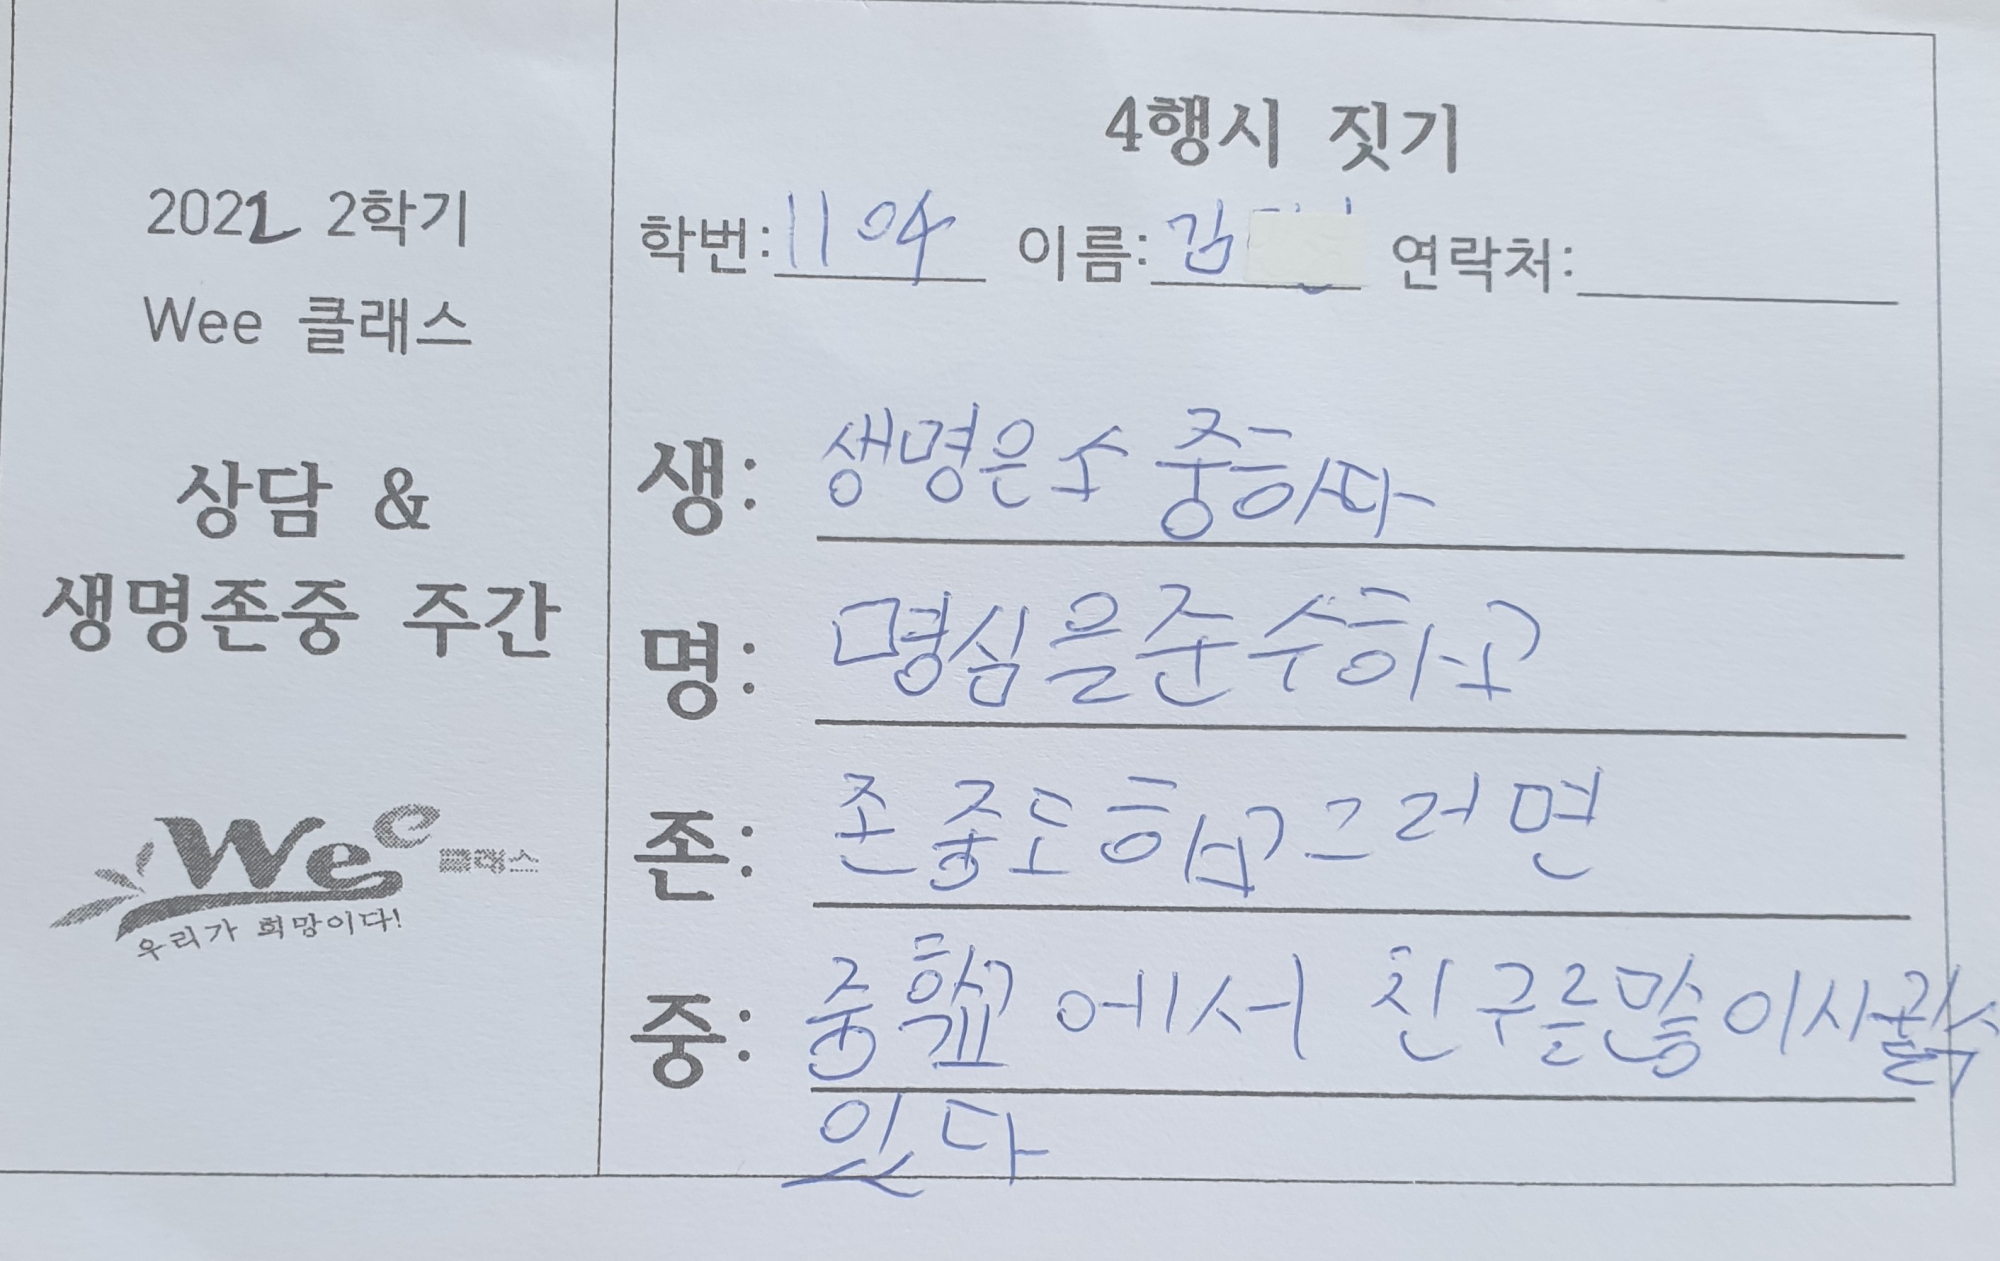 2022 2학기
Wee 클래스
상담 &
생명존중 주간
Wee 클래스
우리가 희망이다!
4행시 짓기
학번: 1104 이름: 김 연락처:
생: 생명은소중하다
명: 명심을준수하고
존: 존중도하고그러면
중: 중학교에서 친구를많이사귈수
있다